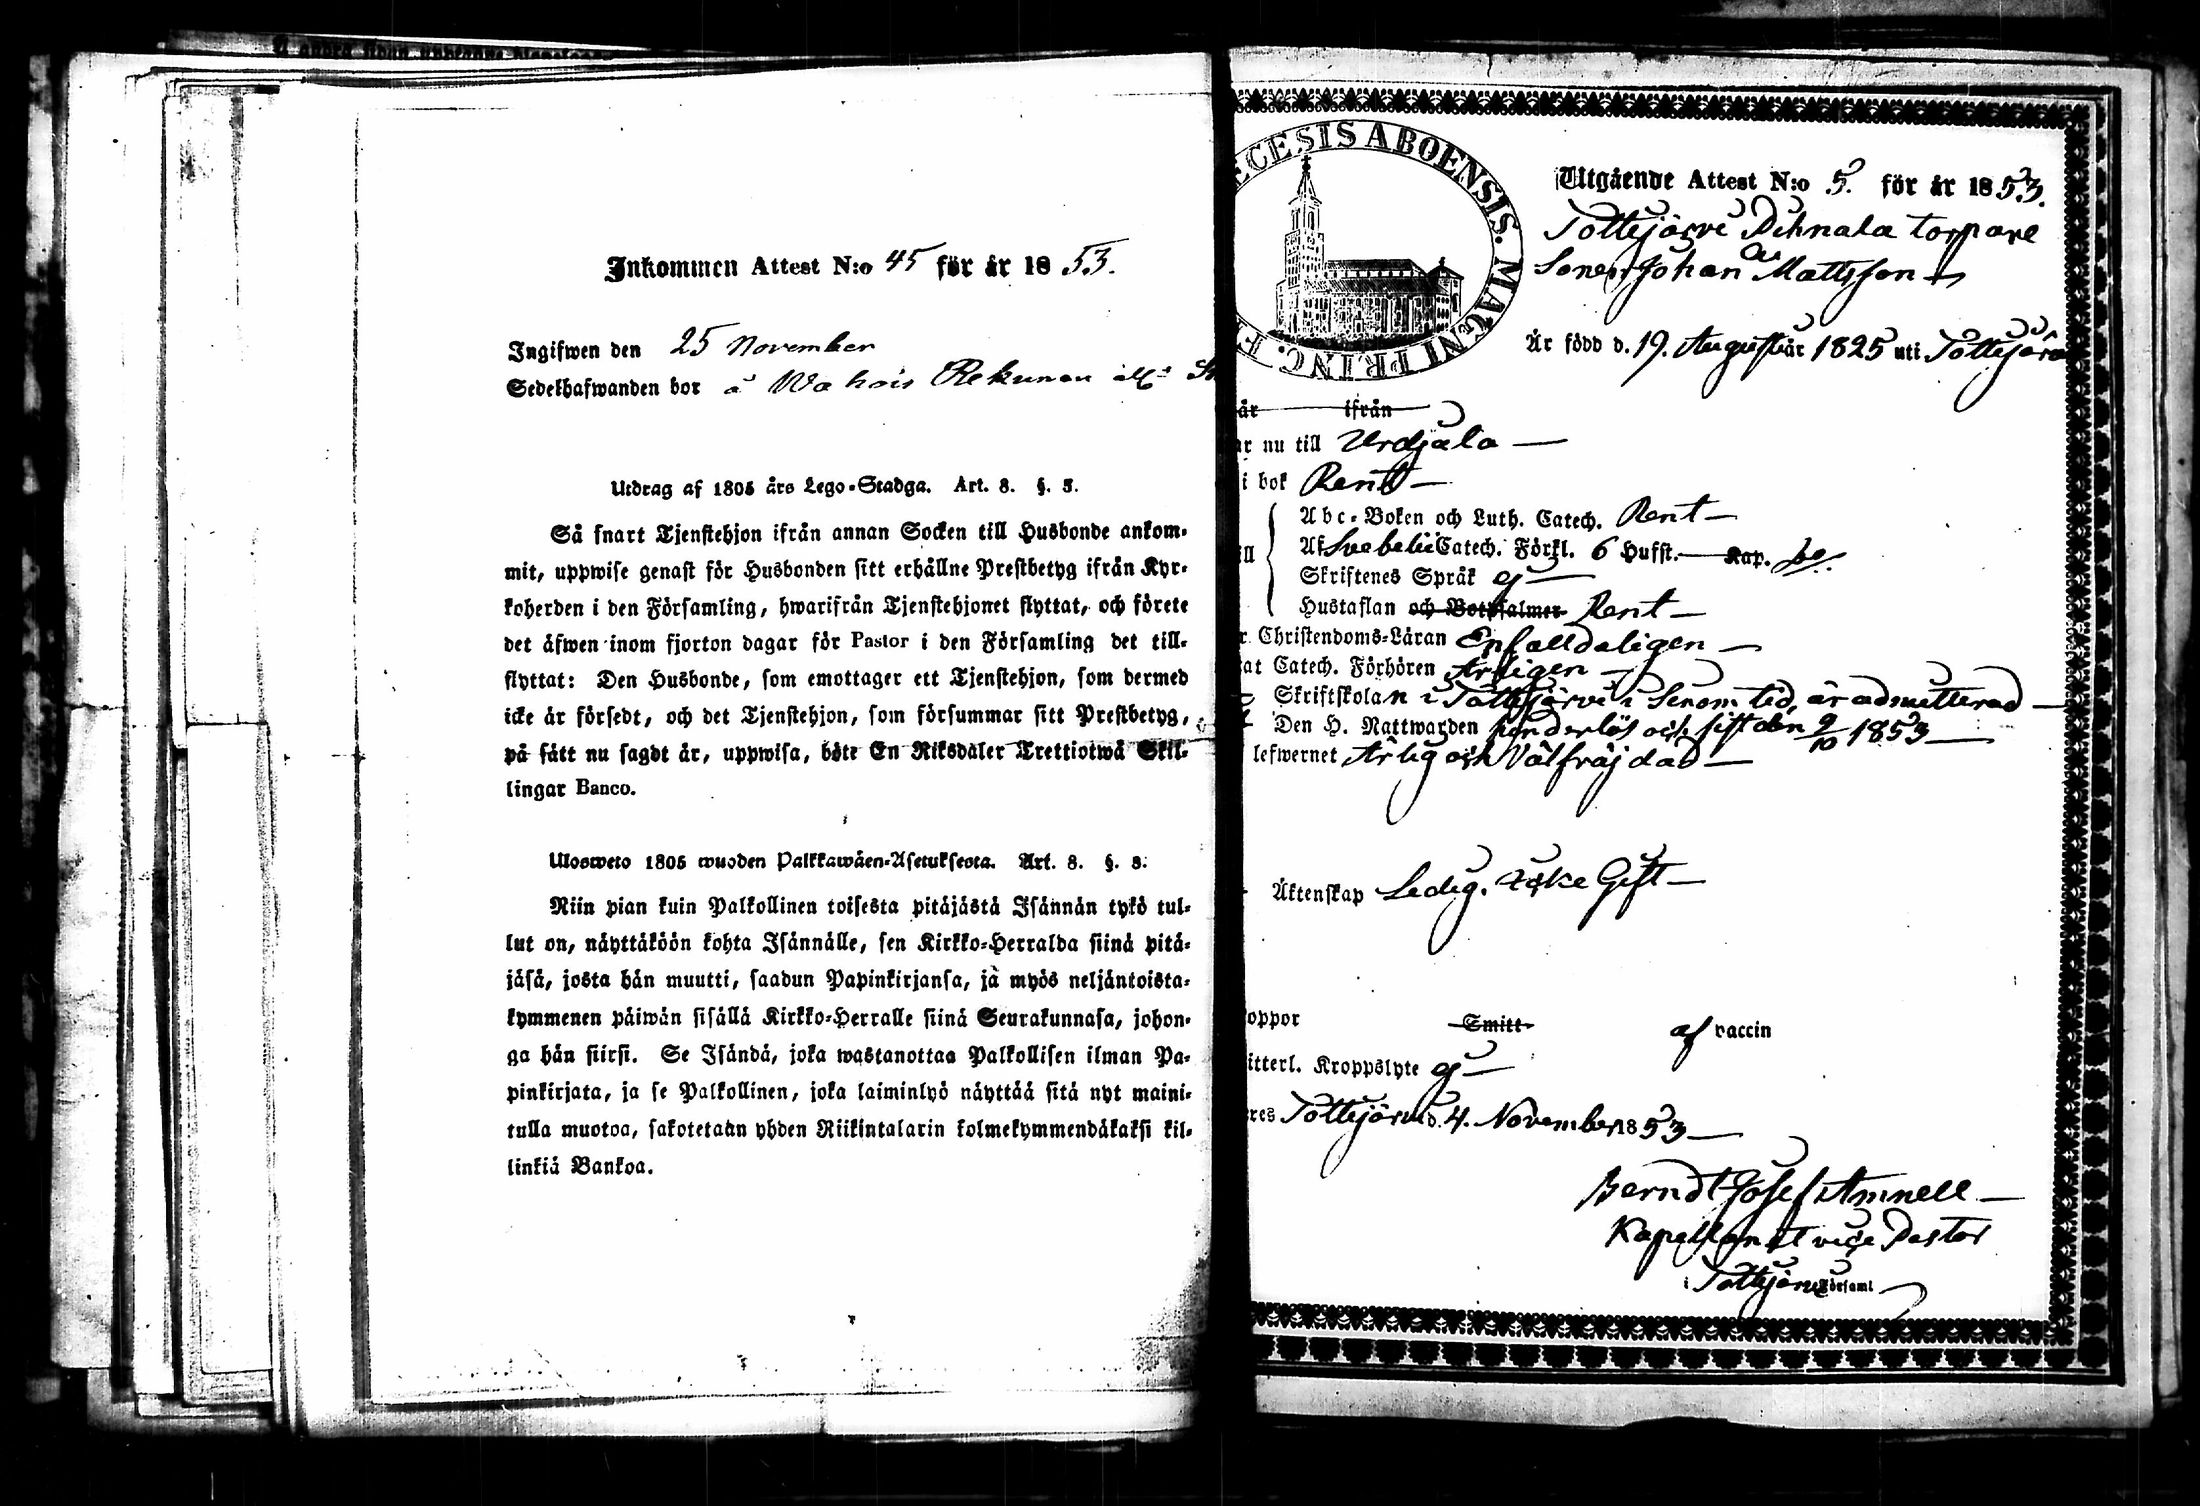 Inkommen Attest N:o 45 för år 1853.
Ingifwen den 25 November
Sedelhafwanden bor å Wahois Rekunen
Utdrag af 1805 års Lego-Stadga. Art. 8. §. 3.
Så snart Tjenstehjon ifrån annan Socken till Husbonde ankom-
mit, uppwise genast för Husbonden sitt erhållne Prestbetyg ifrån Kyr-
koherden i den Församling, hwarifrån Tjenstehjonet flyttat, och förete
det äfwen inom fjorton dagar för Pastor i den Församling det till-
flyttat: Den Husbonde, som emottager ett Tjenstehjon, som dermed
icke är försedt, och det Tjenstehjon, som försummar sitt Prestbetyg,
på sätt nu sagdt är, uppwisa, böte En Riksdaler Trettiotwå Skil-
lingar Banco.
Ulosweto 1805 wuoden Palkkawäen-Asetuksesta. Art. 8. §. 3.
Niin pian kuin Palkollinen toisesta pitäjästä Isännän tykö tul-
lut on, näyttäköön kohta Isännälle, sen Kirkko-Herralda siinä pitä-
jäsä, josta hän muutti, saadun Papinkirjansa, ja myös neljäntoista-
kymmenen päiwän sisällä Kirkko-Herralle siinä Seurakunnasa, johon-
ga hän siirsi. Se Isändä, joka wastanottaa Palkollisen ilman Pa-
pinkirjata, ja se Palkollinen, joka laiminlyö näyttää sitä nyt maini-
tulla muotoa, sakotetaan yhden Riikintalarin kolmekymmendäkaksi kil-
linkiä Bankoa.
ECESIS ABOENSIS. MAGNI PRINC. F
Utgående Attest N:o 5. för år 1853.
Tottejärvi Pihnala torpare
Sonen Johan Mattsson
Är född d. 19. Augusti år 1825 uti Tottejärvi
år ifrån
ar nu till Urdjala
i bok Rent
Abc-Boken och Luth. Catech. Rent
Af Svebelii Catech. Förkl. 6 Hufst. Kap.
Skriftenes Språk ej
Hustaflan och Botpsalmer Rent
r Christendoms-Läran Enfalldeligen
at Catech. Förhören Årligen
Skriftskolan i Tottejärvi i Senom tid, är admitterad
Den H. Nattwarden hinderlös och sist den 9/10 1853
lefwernet Ärlig och Välfräjdad
Äktenskap Ledig. Icke Gift
oppor Smitt af vaccin
itterl. Kroppslyte ej
res Tottejärvi d. 4. November 1853
Berndt Josef Amnell
Kapellan et vice Pastor
i Tottejärvi Församl